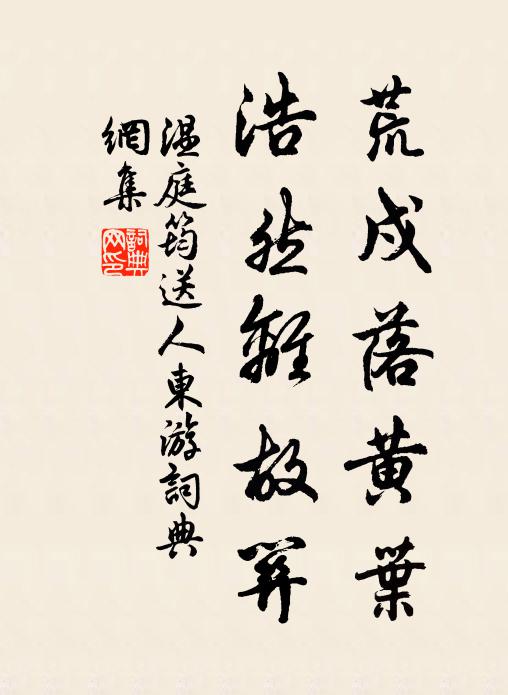 荒戍落黄葉
浩然離故関
温庭筠送人東游詞典
網集
詞典
网印